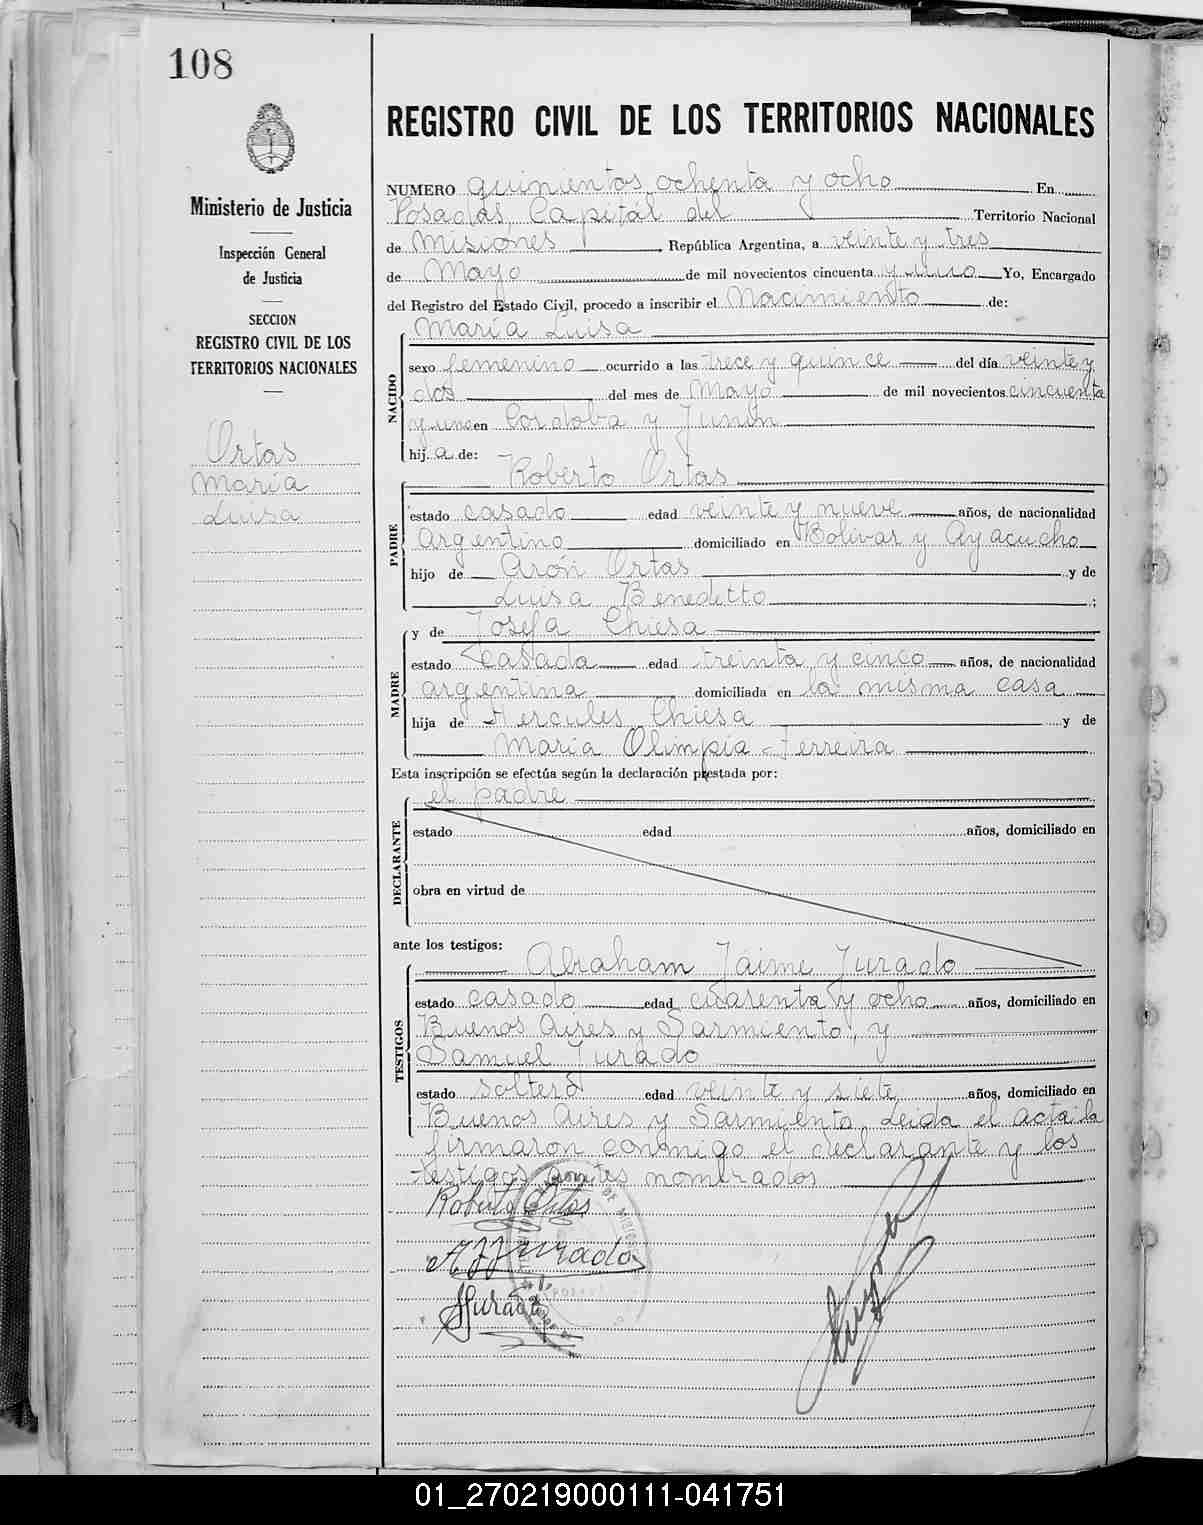 108
REGISTRO CIVIL DE LOS TERRITORIOS NACIONALES
Ministerio de Justicia
Inspección General
de Justicia
SECCION
REGISTRO CIVIL DE LOS
TERRITORIOS NACIONALES
Ortas
María
Luisa
NUMERO quinientos ochenta y ocho En
Posadas, Capital del Territorio Nacional
de Misiones República Argentina, a veinte y tres
de Mayo de mil novecientos cincuenta y uno Yo, Encargado
del Registro del Estado Civil, procedo a inscribir el Nacimiento de:
NACIDO
María Luisa
sexo femenino ocurrido a las trece y quince del día veinte y
dos del mes de Mayo de mil novecientos cincuenta
y uno en Cordoba y Junín
hij a de:
PADRE
Roberto Ortas
estado casado edad veinte y nueve años, de nacionalidad
Argentino domiciliado en Bolivar y Ayacucho
hijo de Arón Ortas y de
Luisa Benedetto ;
MADRE
y de Josefa Chiesa
estado casada edad treinta y cinco años, de nacionalidad
argentina domiciliada en la misma casa
hija de Hercules Chiesa y de
María Olimpia Ferreira
Esta inscripción se efectúa según la declaración prestada por:
DECLARANTE
el padre
estado edad años, domiciliado en
obra en virtud de
ante los testigos:
TESTIGOS
Abraham Jaime Jurado
estado casado edad cuarenta y ocho años, domiciliado en
Buenos Aires y Sarmiento, y
Samuel Jurado
estado soltero edad veinte y siete años, domiciliado en
Buenos Aires y Sarmiento. Leida el acta la
firmaron conmigo el declarante y los
testigos antes nombrados
Roberto Ortas
A J Jurado
S Jurado
01_270219000111-041751